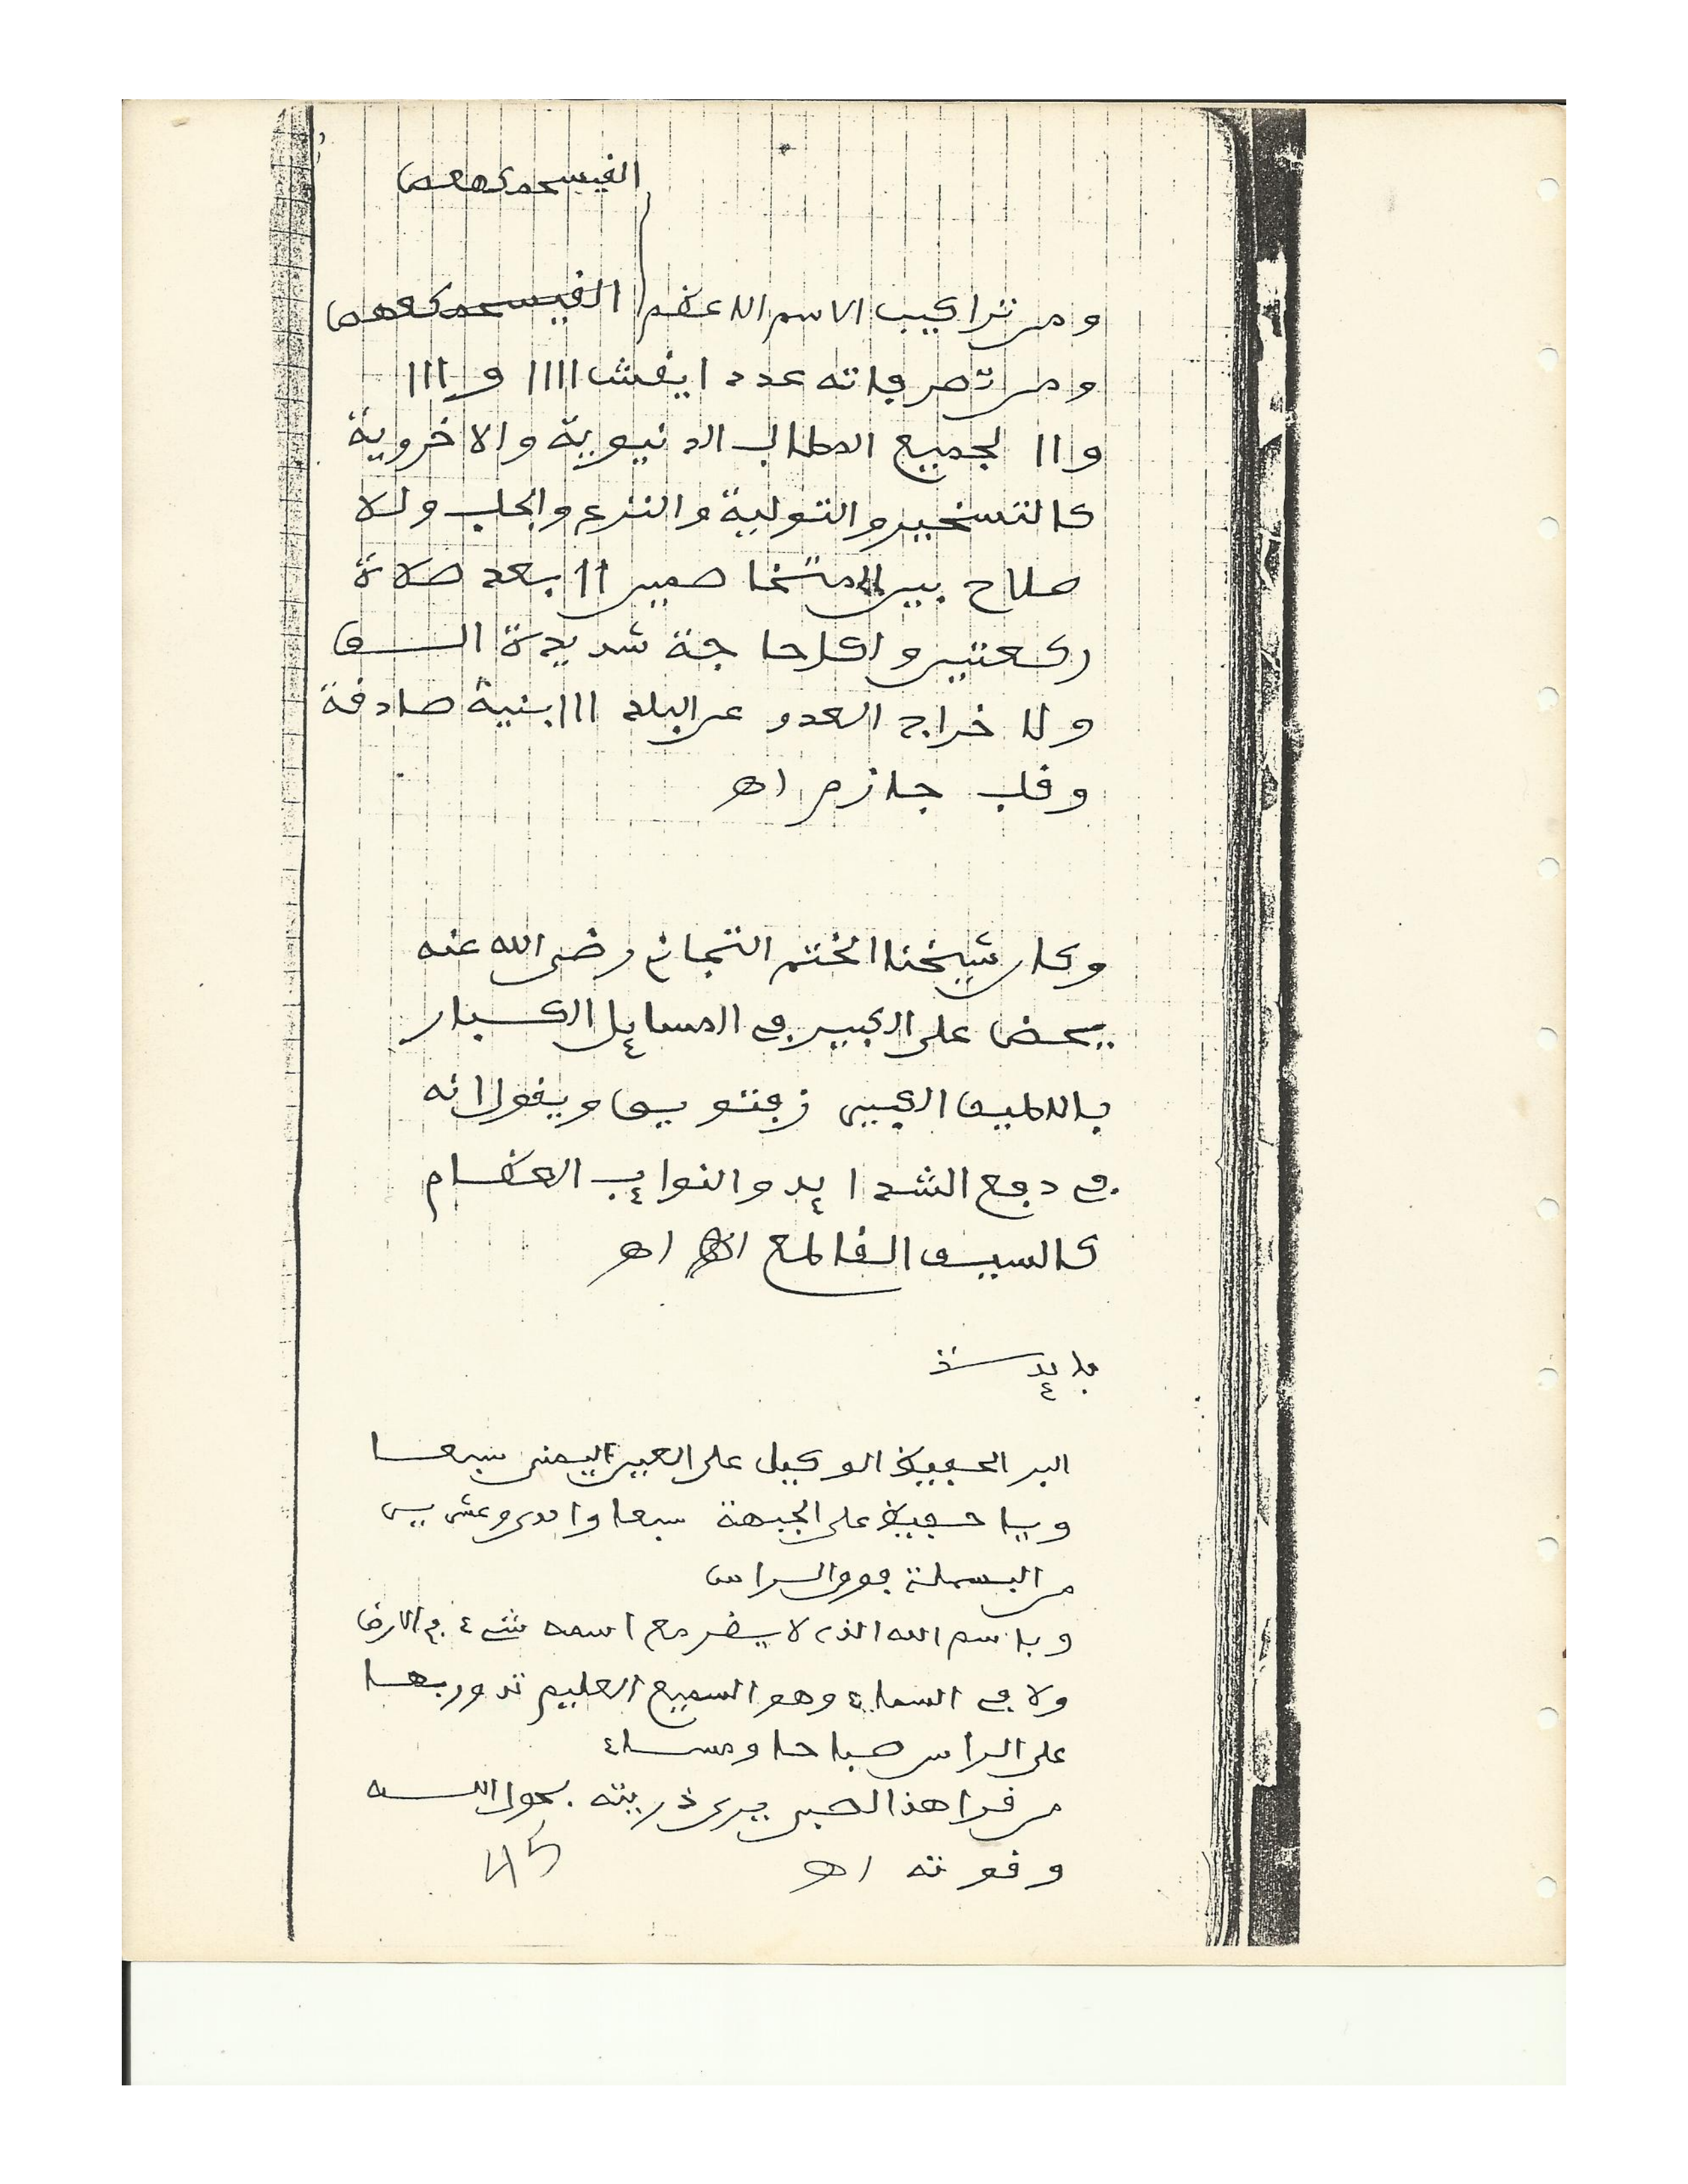 القيسحمكهعص
ومن تراكيب الاسم الاعظم القيسحمكعهص
ومن تصرفاته عدد ايقش ١١١١ و ١١١
و١١ لجميع المطالب الدنيوية والاخروية
كالتسخير والتولية والنزع والجلب ولا
صلاح بين المتخاصمين ١١ بعد صلاة
ركعتين ولكل حاجة شديدة الف
ولاخراج العدو عن البلد ١١١ بنية صادقة
وقلب جازم اه
وكان شيخنا الختم التجاني رضي الله عنه
يحض على الكبير في المسايل الكبار
باللطيف الكبير ويقول انه
في دفع الشدايد والنوايب العظام
كالسيف القاطع اه
فايدة
البر الحفيظ الوكيل على العين اليمنى سبعا
ويا حفيظ على الجبهة سبعا واحدى وعشرين
من البسملة فوق الراس
وباسم الله الذي لا يضر مع اسمه شيء في الارض
ولا في السماء وهو السميع العليم تدور بها
على الراس صباحا ومساء
من قرا هذا الصبي يرى ذريته بحول الله
وقوته اه
45